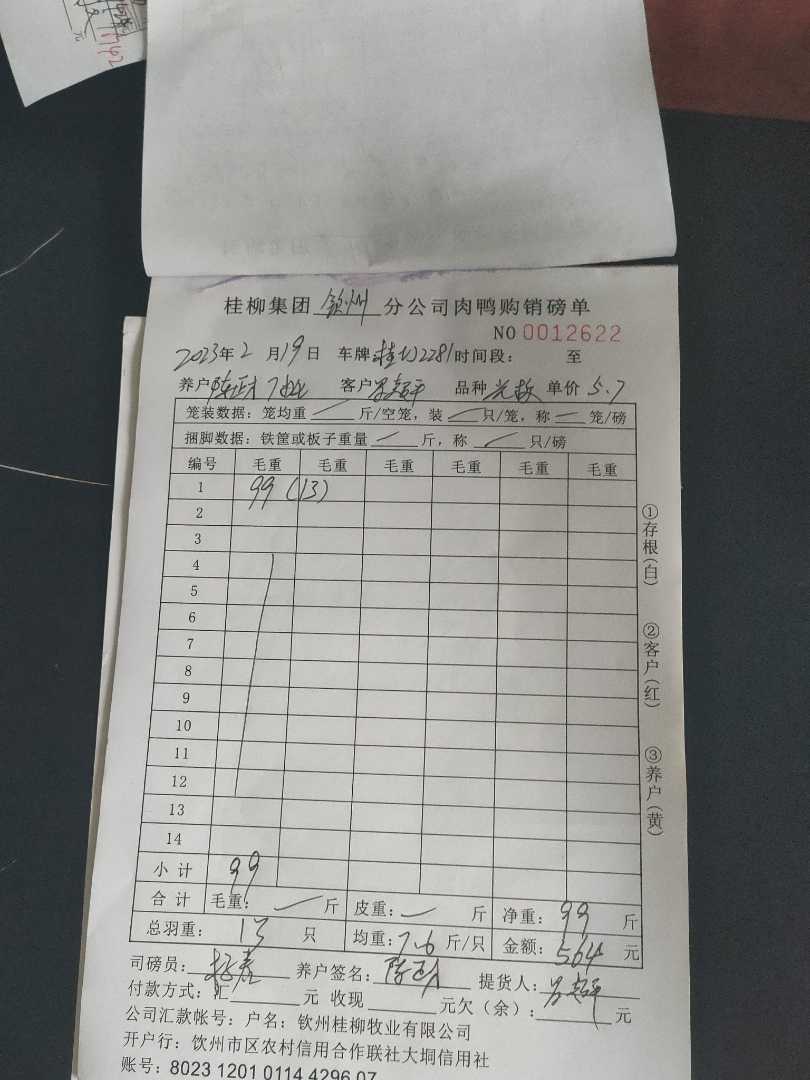 元
桂柳集团 钦州 分公司肉鸭购销磅单
NO 0012622
2023年2月19日 车牌 2281 时间段： 至
养户 客户 品种 单价 5.7
笼装数据：笼均重 斤/空笼，装 只/笼，称 笼/磅
捆脚数据：铁筐或板子重量 斤，称 只/磅
编号 毛重 毛重 毛重 毛重 毛重 毛重
1 99 (13)
2
3
4
5
6
7
8
9
10
11
12
13
14
小计 99
合计 毛重： 斤 皮重： 斤 净重：99 斤
总羽重： 13 只 均重：7.6 斤/只 金额：564 元
①存根（白）
②客户（红）
③养户（黄）
司磅员： 养户签名： 提货人：
付款方式：汇 元 收现 元欠（余）： 元
公司汇款帐号：户名：钦州桂柳牧业有限公司
开户行：钦州市区农村信用合作联社大垌信用社
账号：8023 1201 0114 4296 07